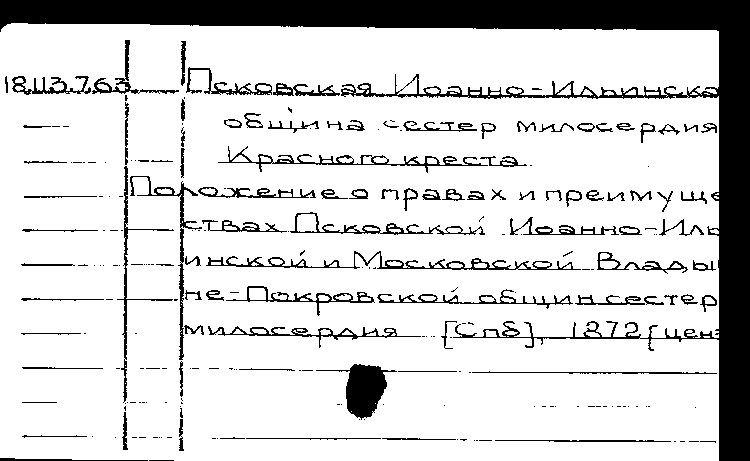 18.113.7.63 Псковская Иоанно-Ильинска
община сестер милосердия
Красного креста.
Положение о правах и преимуще
ствах Псковской Иоанно-Иль
инской и Московской Влады
не-Покровской общин сестер
милосердия [Спб], 1872 [ценз